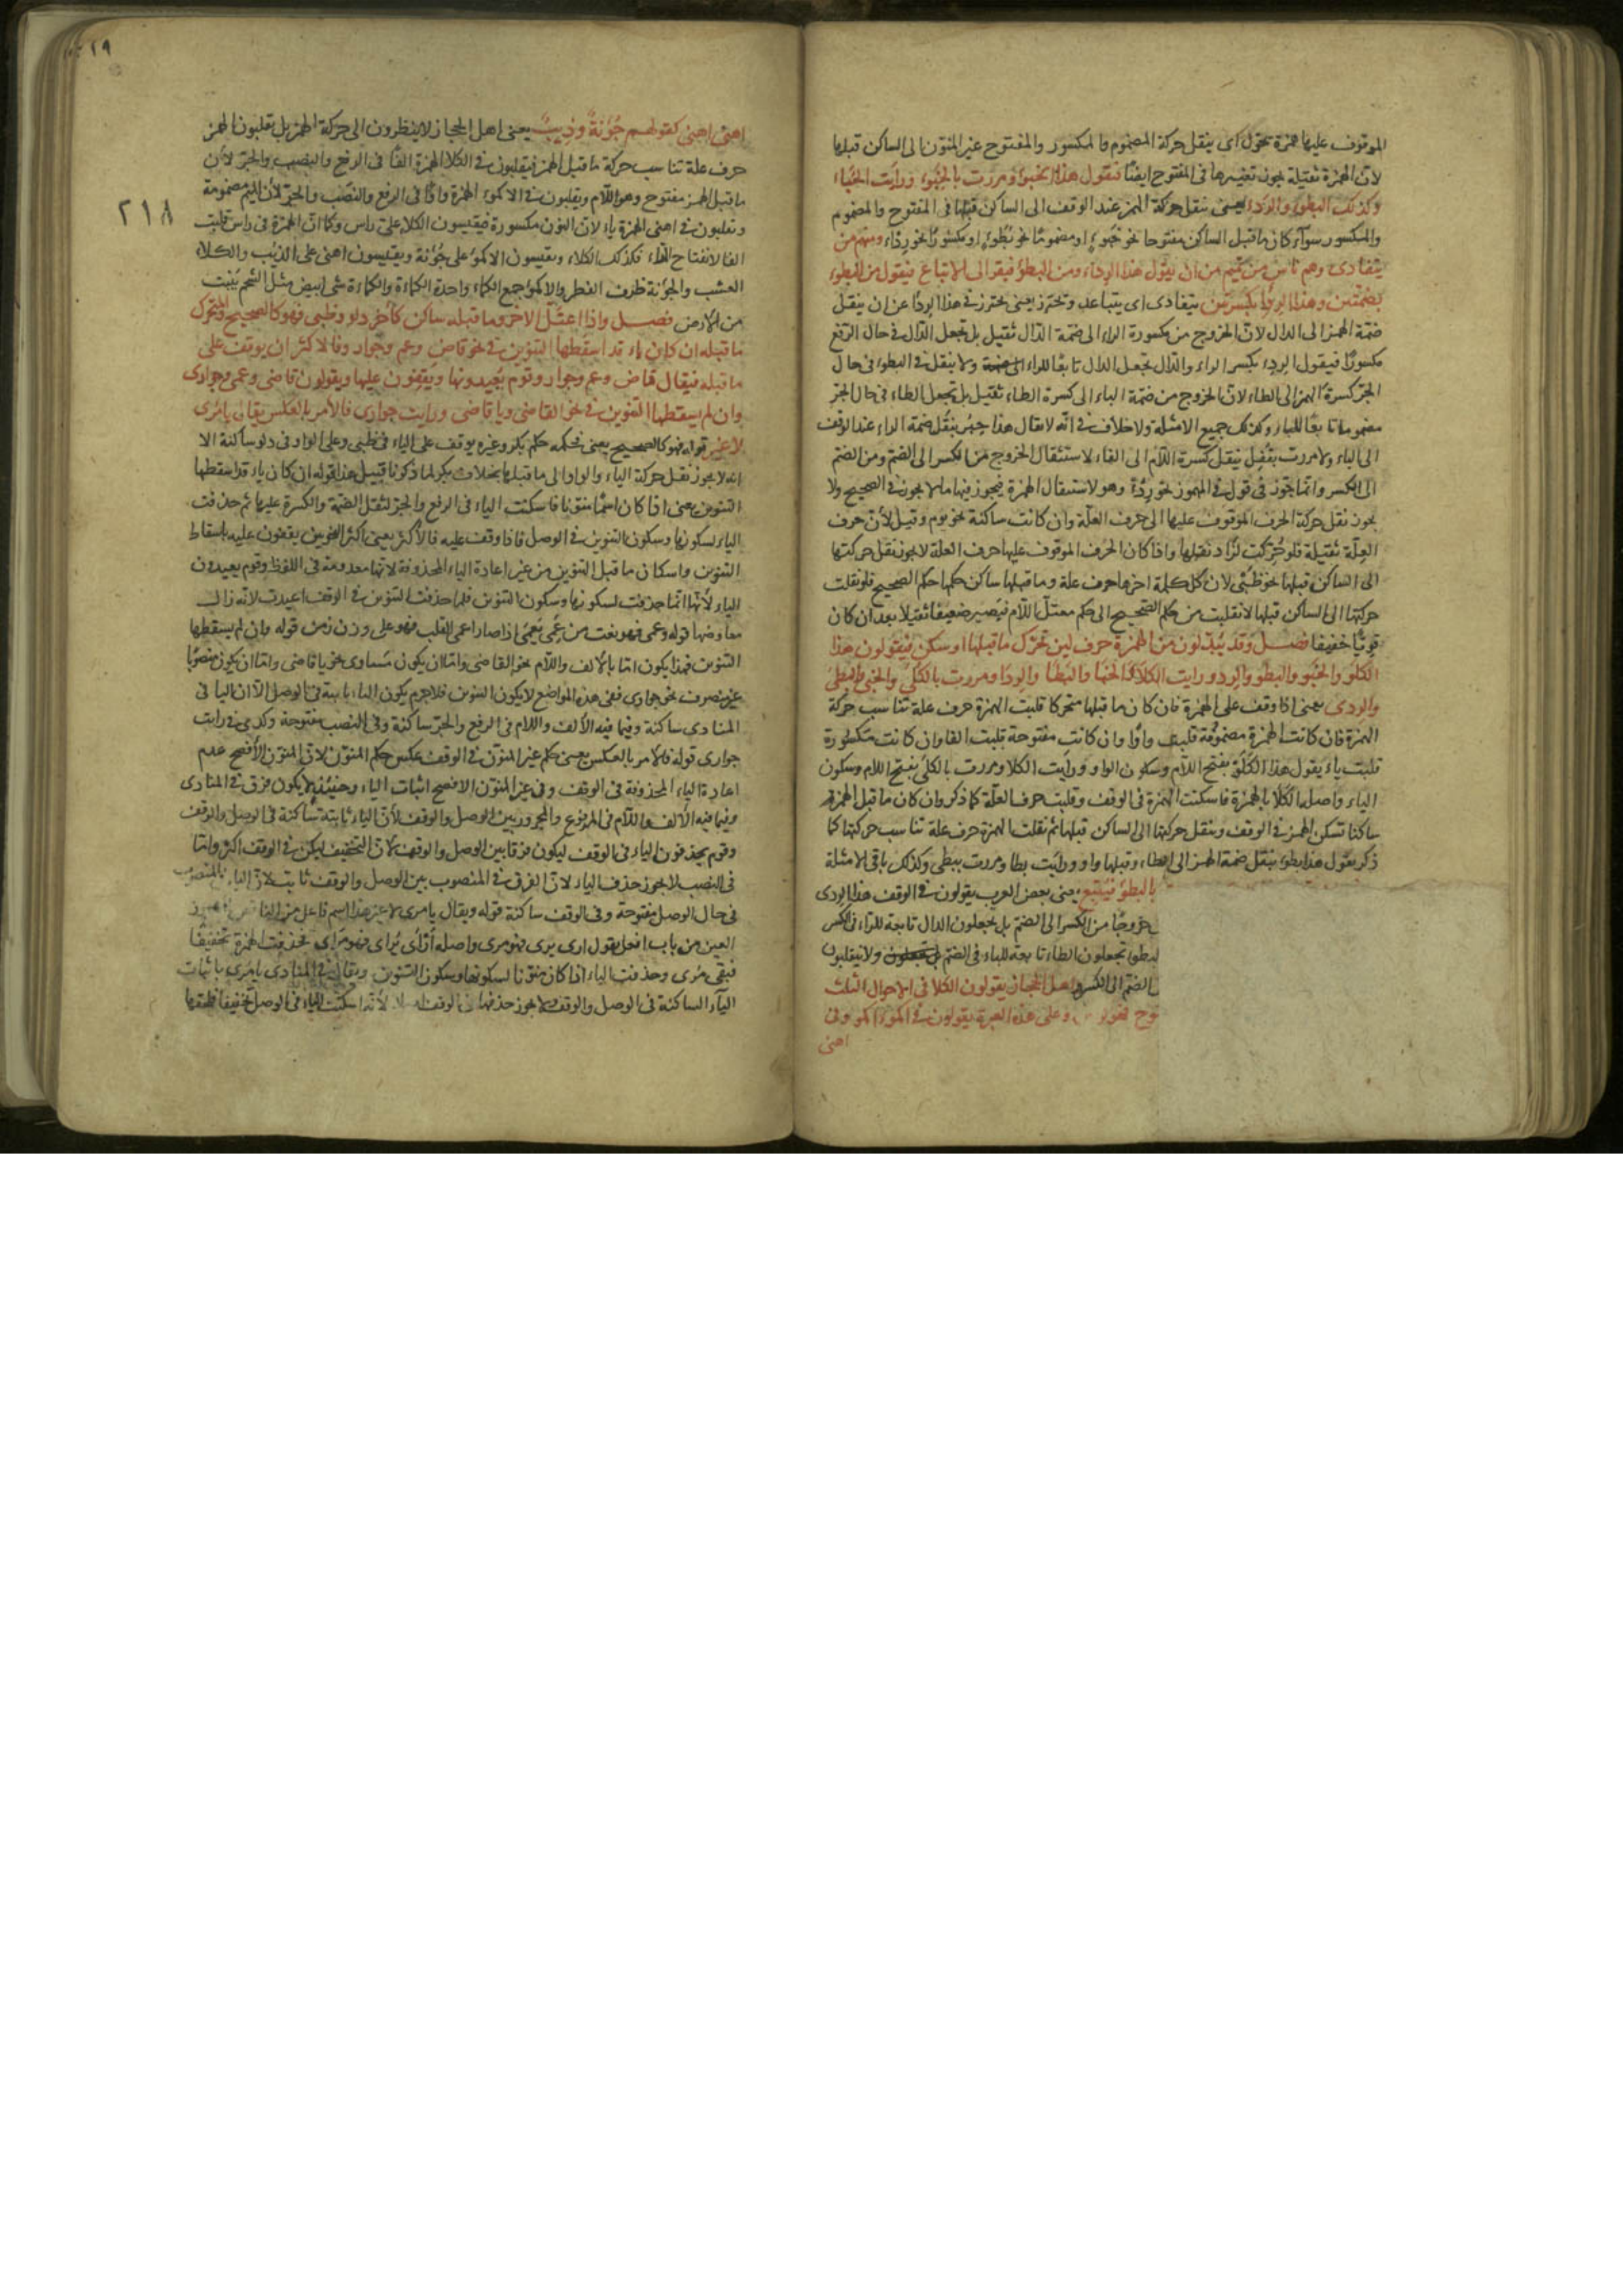 الموقوف عليها همزة تحول اى ينقل حركة المضموم والمكسور والمفتوح غير المنون الى الساكن قبلها
لان الهمزة ثقيلة يجوز تغييرها فى المفتوح ايضا فيقول هذا الخبؤ ومررت بالخبئ ورأيت الخباء
وكذلك البطؤ والردء يعنى ينقل حركة الهمز عند الوقف الى الساكن قبلها فى المفتوح والمضموم
والمكسور سواء كان ما قبل الساكن مفتوحا نحو خبوء او مضموما نحو بطوء او مكسورا نحو رداء ومنهم من
يتفادى وهم ناس من تميم من ان يقول هذا الردء ومن البطؤ فيفر الى الاتباع فيقول من البطوء
بضمتين وهذا الردء بكسرتين يتفادى اى يتباعد وتحترز يعنى يحترز فى هذا الردء عن ان ينقل
ضمة الهمز الى الدال لان الخروج من مكسورة الراء الى ضمة الدال ثقيل بل تجعل الدال فى حال الرفع
مكسورا فيقول الردء بكسر الراء والدال تجعل الدال تابعا للراء ولا ينقل فى البطوء فى حال
الجر كسرة الهمز الى الطاء لان الخروج من ضمة الباء الى كسرة الطاء ثقيل بل تجعل الطاء فى حال الجر
مضموما تابعا للباء وكذلك جميع الامثلة ولا خلاف فى انه لا يقال هذا حبر بنقل ضمة الراء عند الوقف
الى الباء ولا مررت بقفل بنقل كسرة اللام الى الفاء لاستثقال الخروج من الكسر الى الضم ومن الضم
الى الكسر وانما يجوز فى قول فى المهموز نحو ردء وهو لاستثقال الهمزة فيجوز فيها ما لا يجوز فى الصحيح ولا
يجوز نقل حركة الحرف الموقوف عليها الى حرف العلة وان كانت ساكنة نحو يوم وقيل لان حرف
العلة ثقيلة فلو حركت لزاد ثقلها واذا كان الحرف الموقوف عليها حرف العلة لا يجوز نقل حركتها
الى الساكن قبلها نحو ظبى لان كل كلمة اخرها حرف علة وما قبلها ساكن حكمها حكم الصحيح فلو نقلت
حركتها الى الساكن قبلها لانقلبت من حكم الصحيح الى حكم معتل اللام فيصير ضعيفا ثقيلا بعد ان كان
قويا خفيفا فصل وقد يبدلون من الهمزة حرف لين تحرك ما قبلها او سكن فيقولون هذا
الكلو والخبو والبطو والردو ورايت الكلا والخبا والبطا والردا ومررت بالكلى والخبى والبطى
والردى يعنى اذا وقف على الهمزة فان كان ما قبلها متحركا قلبت الهمزة حرف علة تناسب حركة
الهمزة فان كانت الهمزة مضمومة قلبت واوا وان كانت مفتوحة قلبت الفا وان كانت مكسورة
قلبت ياء يقول هذا الكلو بفتح اللام وسكون الواو ورأيت الكلا ومررت بالكلى بفتح اللام وسكون
الياء واصلها الكلأ بالهمزة فاسكنت الهمزة فى الوقف وقلبت حرف العلة كما ذكر وان كان ما قبل الهمزة
ساكنا تسكن الهمز فى الوقف وينقل حركتها الى الساكن قبلها ثم نقلت الهمزة حرف علة تناسب حركتها كما
ذكر يقول هذا بطو بنقل ضمة الهمز الى الطاء وقبلها واو ورأيت بطا ومررت ببطى وكذلك باقى الامثلة
بالبطؤ فيتبع يعنى بعض العرب يقولون فى الوقف هذا الردى
خروجا من الكسر الى الضم بل يجعلون الدال تابعة للراء فى الكسر
لبطو يجعلون الطاء تابعة للباء فى الضم ولا ينقلبون
الضم الى الكسر واهل الحجاز يقولون الكلا فى الاحوال الثلث
وعلى هذه العبرة يقولون فى اكمؤ اكمو وفى
اهنى
١٩
٢١٨
اهنئ اهنى كقولهم جونة وذيب يعنى اهل الحجاز لا ينظرون الى حركة الهمز بل يقلبون الهمز
حرف علة تناسب حركة ما قبل الهمز فيقلبون فى الكلا الهمزة الفا فى الرفع والنصب والجر لان
ما قبل الهمز مفتوح وهو اللام ويقلبون فى الاكموء الهمزة واوا فى الرفع والنصب والجر لان الميم مضمومة
وتقلبون فى اهنى الهمزة ياء لان النون مكسورة فيقيسون الكلا على راس وكما ان الهمزة فى راس قلبت
الفا لانفتاح الراء فكذلك الكلاء وتقيسون الاكمو على جونة ويقيسون اهنى على الذئب والكلاء
العشب والجونة ظرف العطر والاكمو جمع الكماء واحدة الكماءة والكماءة شى ابيض مثل الشحم ينبت
من الارض فصل واذا اعتل الاخر وما قبله ساكن كاخر دلو وظبى فهو كالصحيح والمتحرك
ما قبله ان كان ياء قد اسقطها التنوين فى نحو قاض وعم وجوار فالاكثر ان يوقف على
ما قبله فيقال قاض وعم وجوار وقوم يعيدونها ويقفون عليها ويقولون قاضى وعمى وجوارى
وان لم يسقطها التنوين فى نحو القاضى ويا قاضى ورايت جوارى فالامر بالعكس يقال يا مرى
لا غير قوله فهو كالصحيح يعنى حكمه حكم بكر وغيره يوقف على الياء فى ظبى وعلى الواو فى دلو ساكنة الا
انه لا يجوز نقل حركة الياء والواو الى ما قبلها بخلاف بكر لما ذكرنا قبيل هذا قوله ان كان ياء قد اسقطها
التنوين يعنى اذا كان اسما منقوصا فاسكنت الياء فى الرفع والجر لثقل الضمة والكسرة عليها ثم حذفت
الياء لسكونها وسكون التنوين فى الوصل فاذا وقف عليه فالاكثر يعنى اكثر النحويين يقفون عليه باسقاط
التنوين واسكان ما قبل التنوين من غير اعادة الياء المحذوفة لانها معدومة فى اللفظ وقوم يعيدون
الياء لانها انما حذفت لسكونها وسكون التنوين فلما حذفت التنوين فى الوقف اعيدت لانه زال
معارضها قوله وعمى فهو نعت من عمى يعمى اذا صار اعمى القلب فهو على وزن زمن قوله وان لم يسقطها
التنوين فهذا يكون اما بالالف واللام نحو القاضى واما ان يكون منادى نحو يا قاضى واما ان يكون منصوبا
غير منصرف نحو جوارى ففى هذه المواضع لا يكون التنوين فلا جرم يكون الياء ثابتة فى الوصل الا ان اليا فى
المنادى ساكنة وفيما فيه الالف واللام فى الرفع والجر ساكنة وفى النصب مفتوحة وكذى فى رايت
جوارى قوله فالامر بالعكس يعنى حكم غير المنون فى الوقف عكس حكم المنون لان المنون الافصح عدم
اعادة الياء المحذوفة فى الوقف وفى غير المنون الافصح اثبات الياء وحينئذ لا يكون فرق فى المنادى
وفيما فيه الالف واللام فى المرفوع والمجرور بين الوصل والوقف لان الياء ثابتة ساكنة فى الوصل والوقف
وقوم يحذفون الياء فى الوقف ليكون فرقا بين الوصل والوقف لان التخفيف ليكن فى الوقف اكثر واما
فى النصب لا يجوز حذف الياء لان الفرق فى المنصوب بين الوصل والوقف ثابت لان الياء بالمنصوب
فى حال الوصل مفتوحة وفى الوقف ساكنة قوله ويقال يا مرى لا غير هذا اسم فاعل من
العين من باب افعل يقول ارى يرى فهو مرى واصله ارأى يرأى فهو مرأى فحذفت الهمزة تخفيفا
فبقى مرى وحذفت الياء اذا كان منونا لسكونها وسكون التنوين ويقال فى المنادى يا مرى باثبات
الياء الساكنة فى الوصل والوقف ولا يجوز حذفها فى الوقف لانه اسكنت الياء فى الوصل تخفيفا